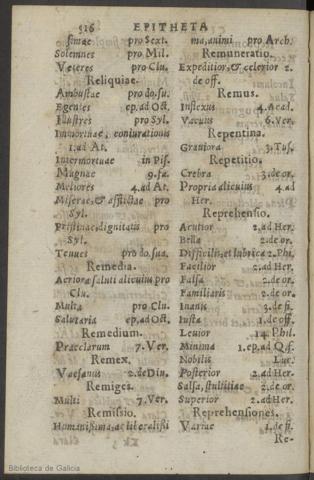 516 EPITHETA
simae pro Sext.
Solemnes pro Mil.
Veteres pro Clu.
Reliquiae.
Ambustae pro do. su.
Egentes ep. ad Oct.
Illustres pro Syl.
Immortuae, coniurationis
1. ad At.
Intermortuae in Pis.
Magnae 9. fa.
Meliores 4. ad At.
Miserae, & afflictae pro
Syl.
Pristinae, dignitatis pro
Syl.
Tenues pro do. sua.
Remedia.
Acriora saluti alicuius pro
Clu.
Multa pro Clu.
Salutaria ep. ad Oct.
Remedium.
Praeclarum 7. Ver.
Remex.
Vaesanus 2. de Diu.
Remiges.
Multi 7. Ver.
Remissio.
Humanissima, ac liberalissi
ma, animi pro Arch.
Remuneratio.
Expeditior, & celerior 2.
de off.
Remus.
Inflexus 4. Acad.
Vacuus 6. Ver.
Repentina.
Graviora 3. Tus.
Repetitio.
Crebra 3. de or.
Propria alicuius 4. ad
Her.
Reprehensio.
Acutior 2. ad Her.
Bella 2. de or.
Difficilis, et lubrica 2. Phi.
Facilior 2. ad Her.
Falsa 2. de or.
Familiaris 2. de or.
Inanis 3. de fi.
Iusta 1. de off.
Leuior 14. Phil.
Minima 1. ep. ad Q. f.
Nobilis Luc.
Posterior 2. ad Her.
Salsa, stultitiae 2. de or.
Superior 2. ad Her.
Reprehensiones.
Variae 1. de fi.
Re-
Biblioteca de Galicia